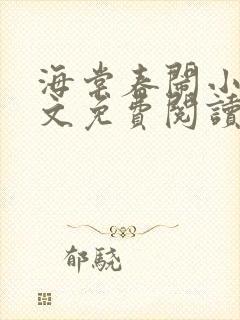 海棠春閨小
文免費閱讀
郁驍